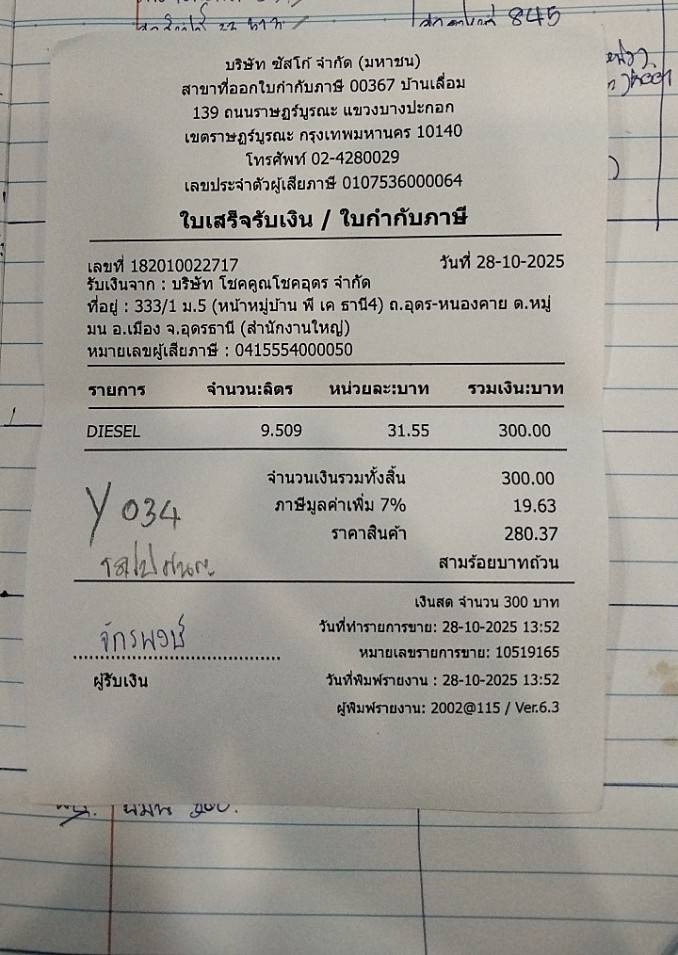 845
บริษัท ซัสโก้ จำกัด (มหาชน)
สาขาที่ออกใบกำกับภาษี 00367 บ้านเลื่อม
139 ถนนราษฎร์บูรณะ แขวงบางปะกอก
เขตราษฎร์บูรณะ กรุงเทพมหานคร 10140
โทรศัพท์ 02-4280029
เลขประจำตัวผู้เสียภาษี 0107536000064
ใบเสร็จรับเงิน / ใบกำกับภาษี
เลขที่ 182010022717 วันที่ 28-10-2025
รับเงินจาก : บริษัท โชคคูณโชคอุดร จำกัด
ที่อยู่ : 333/1 ม.5 (หน้าหมู่บ้าน พี เค ธานี4) ถ.อุดร-หนองคาย ต.หมู
มน อ.เมือง จ.อุดรธานี (สำนักงานใหญ่)
หมายเลขผู้เสียภาษี : 0415554000050
รายการ จำนวน:ลิตร หน่วยละ:บาท รวมเงิน:บาท
DIESEL 9.509 31.55 300.00
จำนวนเงินรวมทั้งสิ้น 300.00
Y 034 ภาษีมูลค่าเพิ่ม 7% 19.63
ราคาสินค้า 280.37
สามร้อยบาทถ้วน
เงินสด จำนวน 300 บาท
จักรพงษ์ วันที่ทำรายการขาย: 28-10-2025 13:52
หมายเลขรายการขาย: 10519165
ผู้รับเงิน วันที่พิมพ์รายงาน : 28-10-2025 13:52
ผู้พิมพ์รายงาน: 2002@115 / Ver.6.3